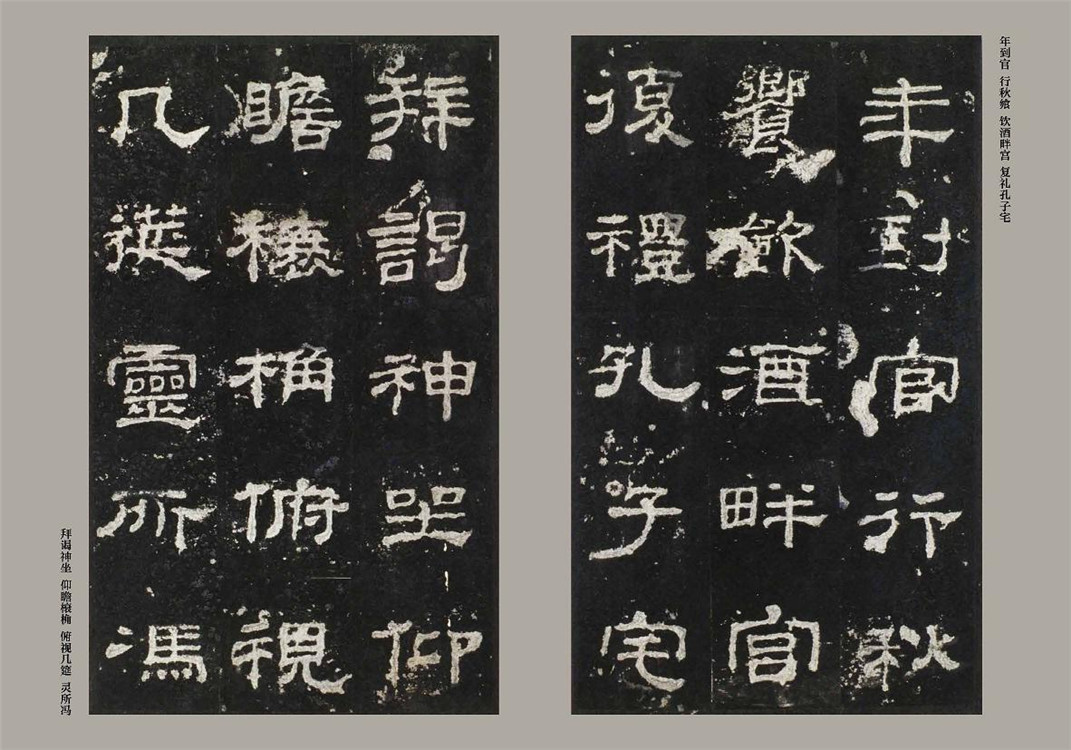 年到官 行秋飨 饮酒畔宫 复礼孔子宅
年到官行秋
饗飲酒畔宮
復禮孔子宅
拜謁神坐仰
瞻榱桷俯視
几筵靈所馮
拜谒神坐 仰瞻榱桷 俯视几筵 灵所冯